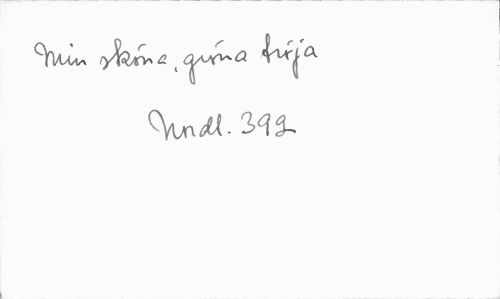 Min sköna, gröna tröja
Nordl. 399